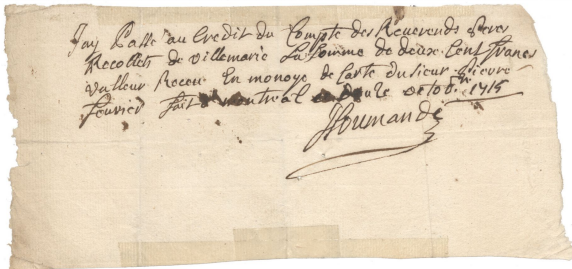 Jay Passé au Credit du Compte des Reverends Peres
Recollets de villemarie La Somme de deux Cent francs
valleur Receu En monoye de Carte du sieur Pierre
fait a montreal octobre 1715